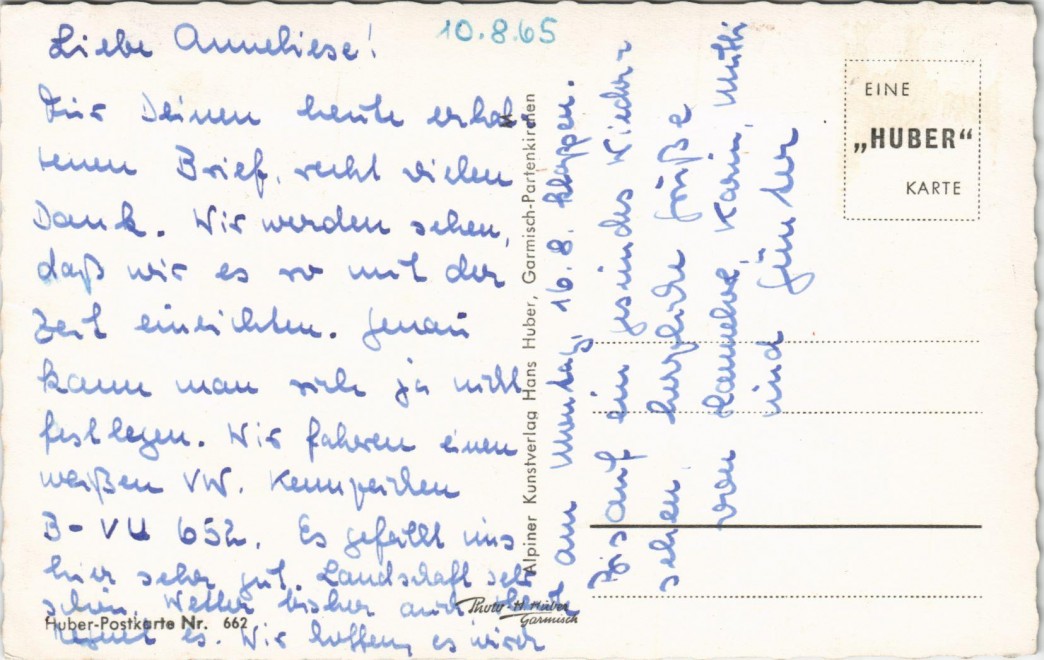 10.8.65
Liebe Anneliese!
Für Deinen heute erhal-
tenen Brief, recht vielen
Dank. Wir werden sehen,
daß wir es so mit der
Zeit einrichten. Genau
kann man sich ja nicht
festlegen. Wir fahren einen
weißen VW. Kennzeichen
B-VU 652. Es gefällt uns
hier sehr gut. Landschaft sehr
schön, Wetter bisher auch, heute
regnet es. Wir hoffen, es wird
am Montag, 16.8. klappen.
Bis auf ein gesundes Wieder-
sehen herzliche Grüße
von Hannelore, Karin, Mutti
und Günter
Alpiner Kunstverlag Hans Huber, Garmisch-Partenkirchen
EINE
„HUBER“
KARTE
Photo-H. Huber
Garmisch
Huber-Postkarte Nr. 662